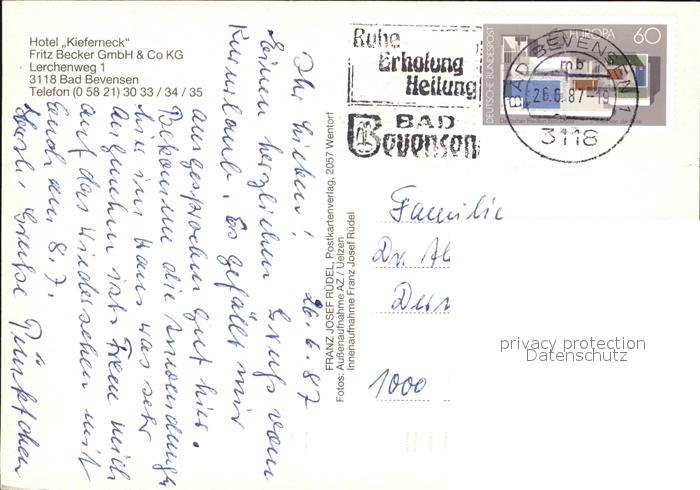 Hotel „Kieferneck"
Fritz Becker GmbH & Co KG
Lerchenweg 1
3118 Bad Bevensen
Telefon (0 58 21) 30 33 / 34 / 35
Ruhe
Erholung
Heilung
BAD
Bevensen
DEUTSCHE BUNDESPOST
EUROPA 60
BAD BEVENSEN 1
mb
26.6.87-19
3118
26.6.87
Ihr Lieben!
Einen herzlichen Gruß vom
Kururlaub. Es gefällt mir
ausgesprochen gut hier.
Bekomme die Anwendung
hier im Haus was sehr
angenehm ist. Freu mich
auf das Wiedersehen mit
Euch am 8.7.
Herzl. Grüße Pünktchen
FRANZ JOSEF RÜDEL, Postkartenverlag, 2057 Wentorf
Fotos: Außenaufnahme AZ / Uelzen
Innenaufnahme Franz Josef Rüdel
Familie
Dr. Al
1000
privacy protection
Datenschutz